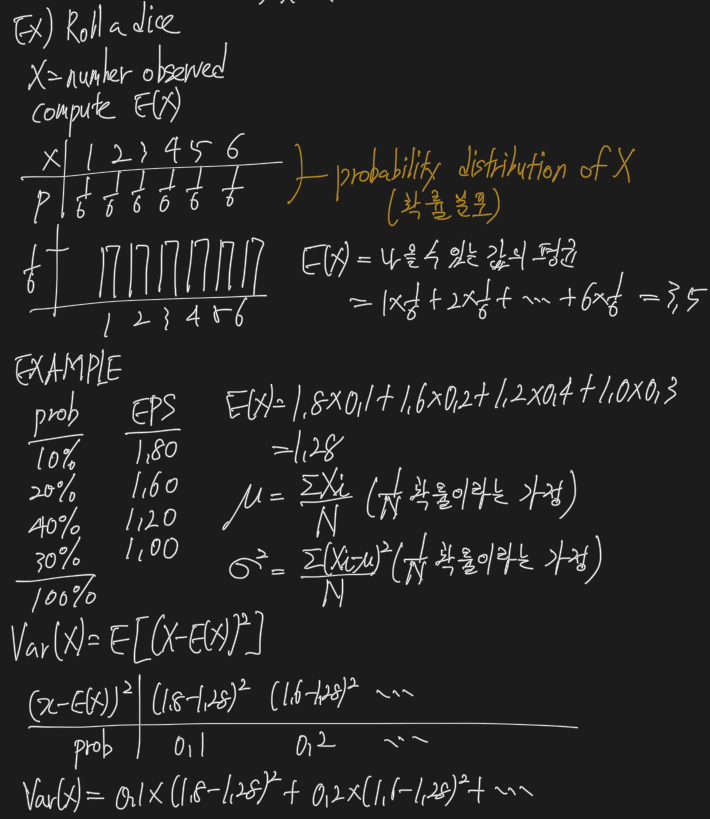 Ex) Roll a dice
X = number observed
compute E(X)
X 1 2 3 4 5 6
P 1/6 1/6 1/6 1/6 1/6 1/6
probability distribution of X
(확률분포)
1/6
1 2 3 4 5 6
E(X) = 나올 수 있는 값의 평균
= 1×1/6 + 2×1/6 + ... + 6×1/6 = 3,5
EXAMPLE
prob EPS
10% 1,80
20% 1,60
40% 1,20
30% 1,00
100%
E(X) = 1,8×0,1 + 1,6×0,2 + 1,2×0,4 + 1,0×0,3
= 1,28
μ = ΣXi/N (1/N 확률이라는 가정)
σ² = Σ(Xi-μ)²/N (1/N 확률이라는 가정)
Var(X) = E[(X-E(X))²]
(x-E(X))² (1,8-1,28)² (1,6-1,28)² ...
prob 0,1 0,2 ...
Var(X) = 0,1×(1,8-1,28)² + 0,2×(1,6-1,28)² + ...